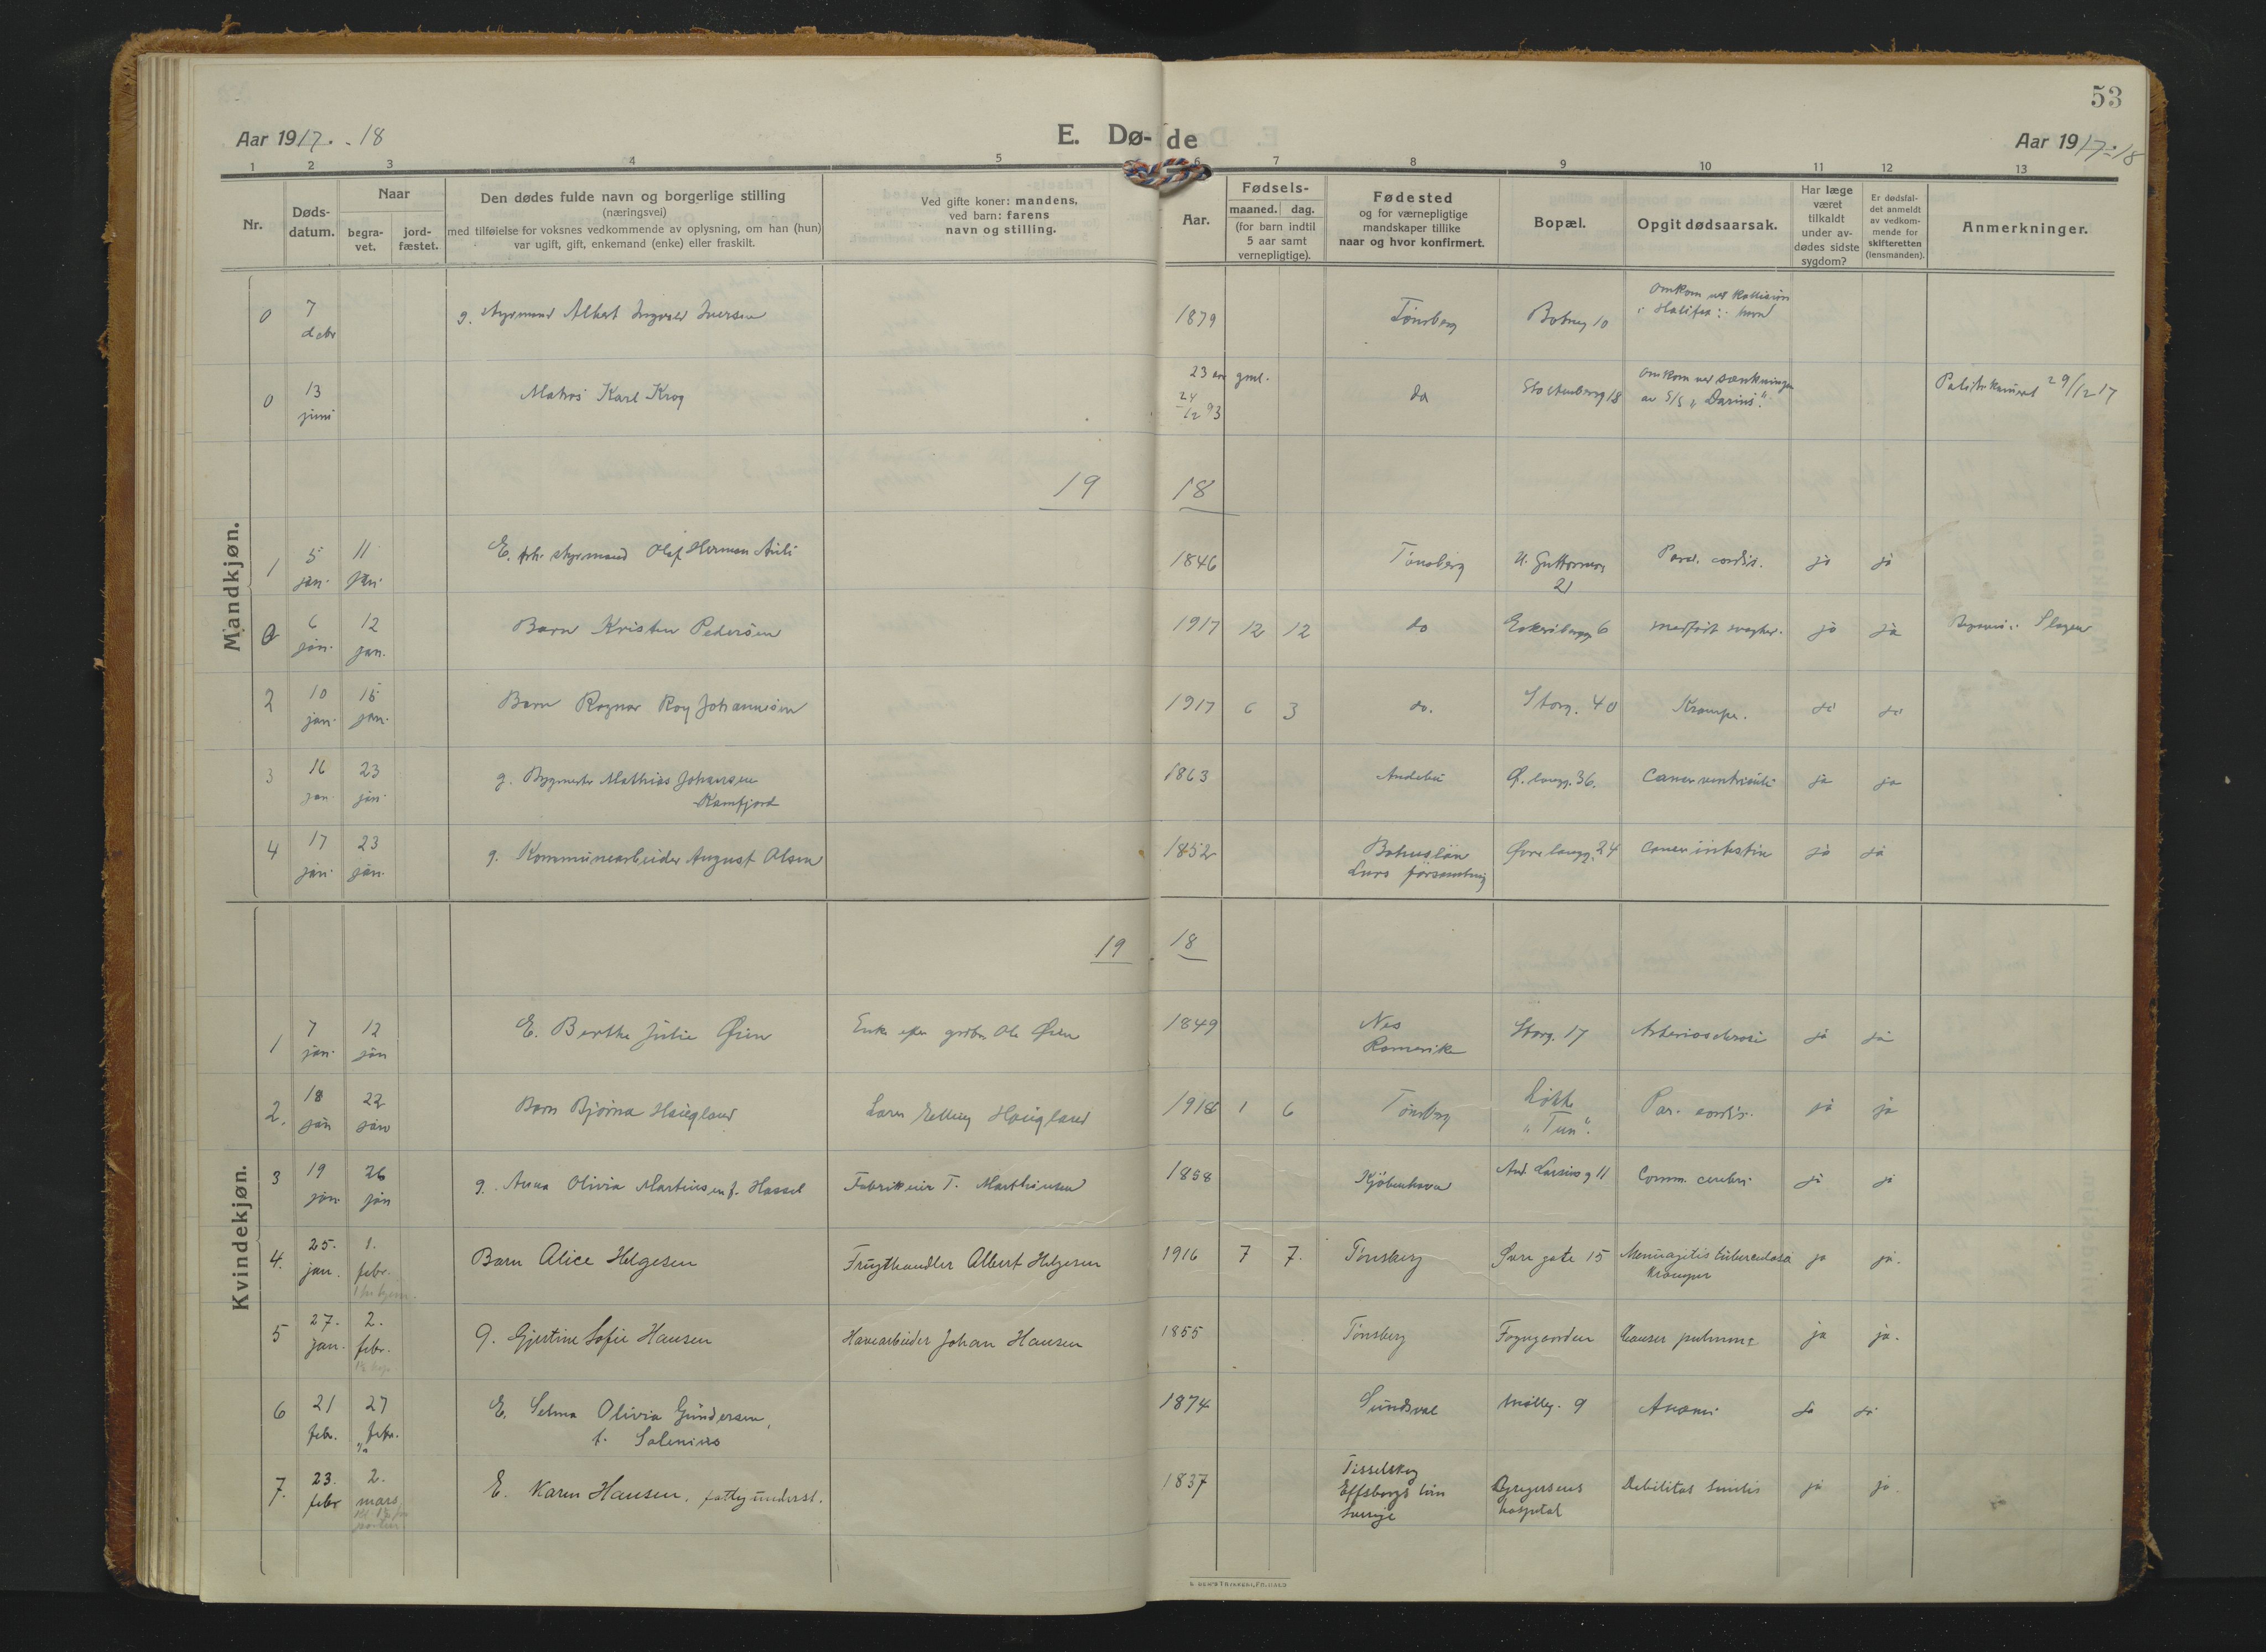 53
Aar 1917. - 18
E. Dø-de
Aar 1917-18
1 2 3 4 5 6 7 8 9 10 11 12 13
Nr.
Døds-
datum.
Naar
begra-
vet.
jord-
fæstet.
Den dødes fulde navn og borgerlige stilling
(næringsvei)
med tilføielse for voksnes vedkommende av oplysning, om han (hun)
var ugift, gift, enkemand (enke) eller fraskilt.
Ved gifte koner: mandens,
ved barn: farens
navn og stilling.
Aar.
Fødsels-
maaned. dag.
(for barn indtil
5 aar samt
vernepligtige).
Fødested
og for værnepligtige
mandskaper tillike
naar og hvor konfirmert.
Bopæl.
Opgit dødsaarsak.
Har læge
været
tilkaldt
under av-
dødes sidste
sygdom?
Er dødsfal-
det anmeldt
av vedkom-
mende for
skifteretten
(lensmanden).
Anmerkninger.
Mandkjøn.
0 7 debr g. styrmand Albert Ingvald Iversen 1879 Tønsberg 10 omkom ved kollision
Halifax havn
0 13 juni Matros Karl Krog 23 aar gml. do 18 omkom ved sænkningen
24/12 93 av S/S "Darius". 29/12 17
19 18
1 5 jan. 11 jan. E. fhv. styrmand Olaf Herman 1846 Tønsberg 21 Paral. cordis. ja ja
0 6 jan. 12 jan. Barn Kristen Pedersen 1917 12 12 do 6 medfødt svaghet. ja ja Slagen
2 10 jan. 15 jan. Barn Ragnar Roy Johannesen 1917 6 3 do. Storg. 40 Krampe. ja ja
3 16 jan. 23 jan. g. Bygmester Mathias Johansen 1863 Andebu Ø. langg. 36. Cancer ventriculi ja ja
Kamfjord
4 17 jan. 23 jan. g. Kommunearbeider August Olsen 1852 Bohuslän Øvre langg. 24 Cancer intestin ja ja
Lurs församling
Kvindekjøn.
19 18
1 7 jan. 12 jan E. Berthe Julie Øien Enke efter Ole Øien 1849 Nes Storg. 17 Arteriosclerose ja ja
Romerike
2. 18 jan 22 jan Barn Bjørna Haugland Haugland 1918 1 6 Tønsberg Løkke Par. cordis. ja ja
"Tun".
3 19 jan. 26 jan g. Anna Olivia Martinsen f. Hassel Fabrikeier T. Marthinsen 1858 Kjøbenhavn 11 Comm. cerebri ja ja
4. 25. jan. 1. febr. Barn Alice Helgesen Frugthandler Albert Helgesen 1916 7 7. Tønsberg Øvre gate 15 Meningitis tuberculosa ja ja.
Kramper
5 27. jan. 2. febr. g. Gjertine Sofie Hansen Havearbeider Johan Hansen 1855 Tønsberg Cancer pulmon. ja ja.
6 21 febr. 27 febr. E. Selma Olivia Gundersen, 1874 Sundsval Mølleg. 9 Anæmi ja ja
f. Salenius
7. 23. febr 2. mars E. Karen Hansen. fattigunderst. 1837 Tisselskog Gregersens Debilitas senilis ja ja.
Elfsborgs län hospital
Sverige